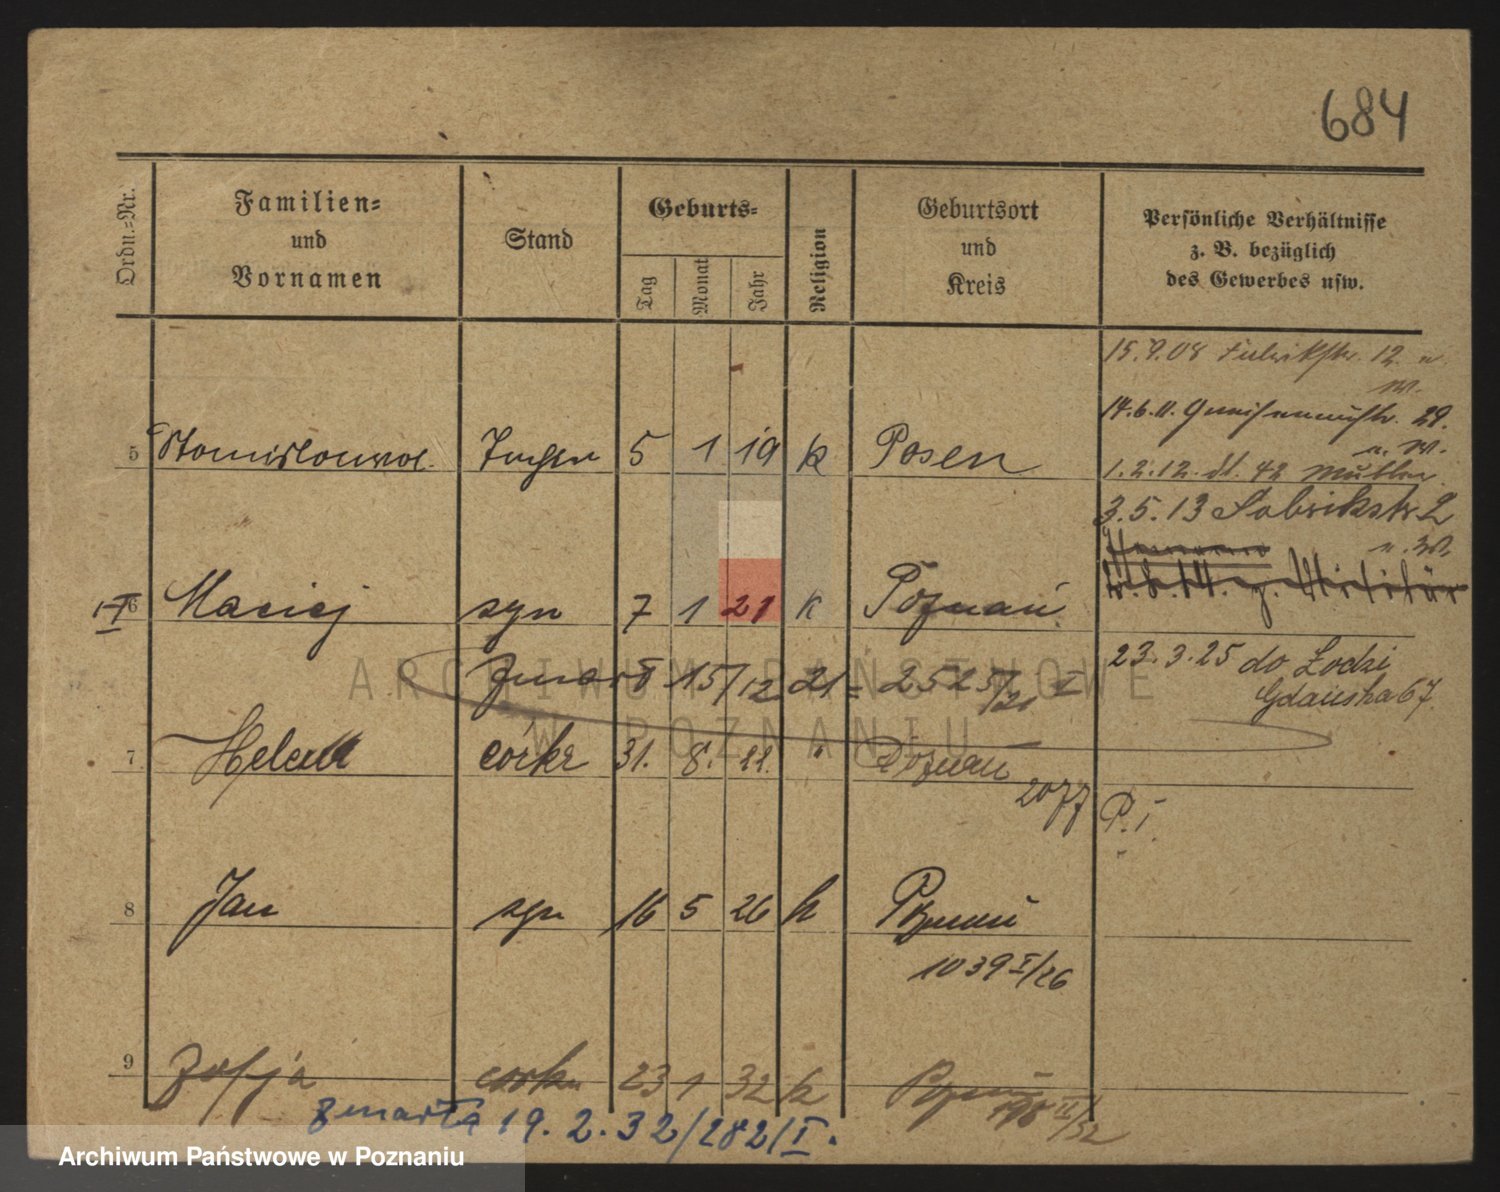 684
Ordn.=Nr.
Familien=
und
Vornamen
Stand
Geburts=
Tag
Monat
Jahr
Religion
Geburtsort
und
Kreis
Persönliche Verhältnisse
z. B. bezüglich
des Gewerbes usw.
15.9.08 Fabrikstr. 12
14.6.11. Gneisenaustr. 29.
5 Tochter 5 1 19 k Posen
1.2.12.
3.5.13 Fabrikstr 2
6 Maciej syn 7 1 21 k Poznań
23.3.25 do Łodzi
Gdańska 67.
zmarł 15/12 21 = 2525/21 I
7 Helena córka 31. 8. 22. " Poznań
2077
P. I.
8 Jan syn 16 5 26 k Poznań
1039 I/26
9 Zofja córka 23 1 32 k Poznań
198 II/32
zmarła 19.2.32/282/I.
ARCHIWUM PAŃSTWOWE
W POZNANIU
Archiwum Państwowe w Poznaniu